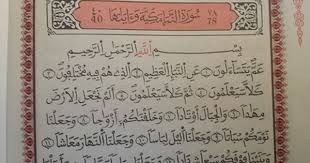 ٧٨ سُورَةُ النَّبَإِ مَكِّيَّةٌ وَآيَاتُهَا ٤٠
78 40
بِسْمِ اللَّهِ الرَّحْمَٰنِ الرَّحِيمِ
عَمَّ يَتَسَاءَلُونَ ١ عَنِ النَّبَإِ الْعَظِيمِ ٢ الَّذِي هُمْ فِيهِ مُخْتَلِفُونَ ٣
كَلَّا سَيَعْلَمُونَ ٤ ثُمَّ كَلَّا سَيَعْلَمُونَ ٥ أَلَمْ نَجْعَلِ الْأَرْضَ
مِهَادًا ٦ وَالْجِبَالَ أَوْتَادًا ٧ وَخَلَقْنَاكُمْ أَزْوَاجًا ٨ وَجَعَلْنَا
نَوْمَكُمْ سُبَاتًا ٩ وَجَعَلْنَا اللَّيْلَ لِبَاسًا ١٠ وَجَعَلْنَا النَّهَارَ مَعَاشًا ١١